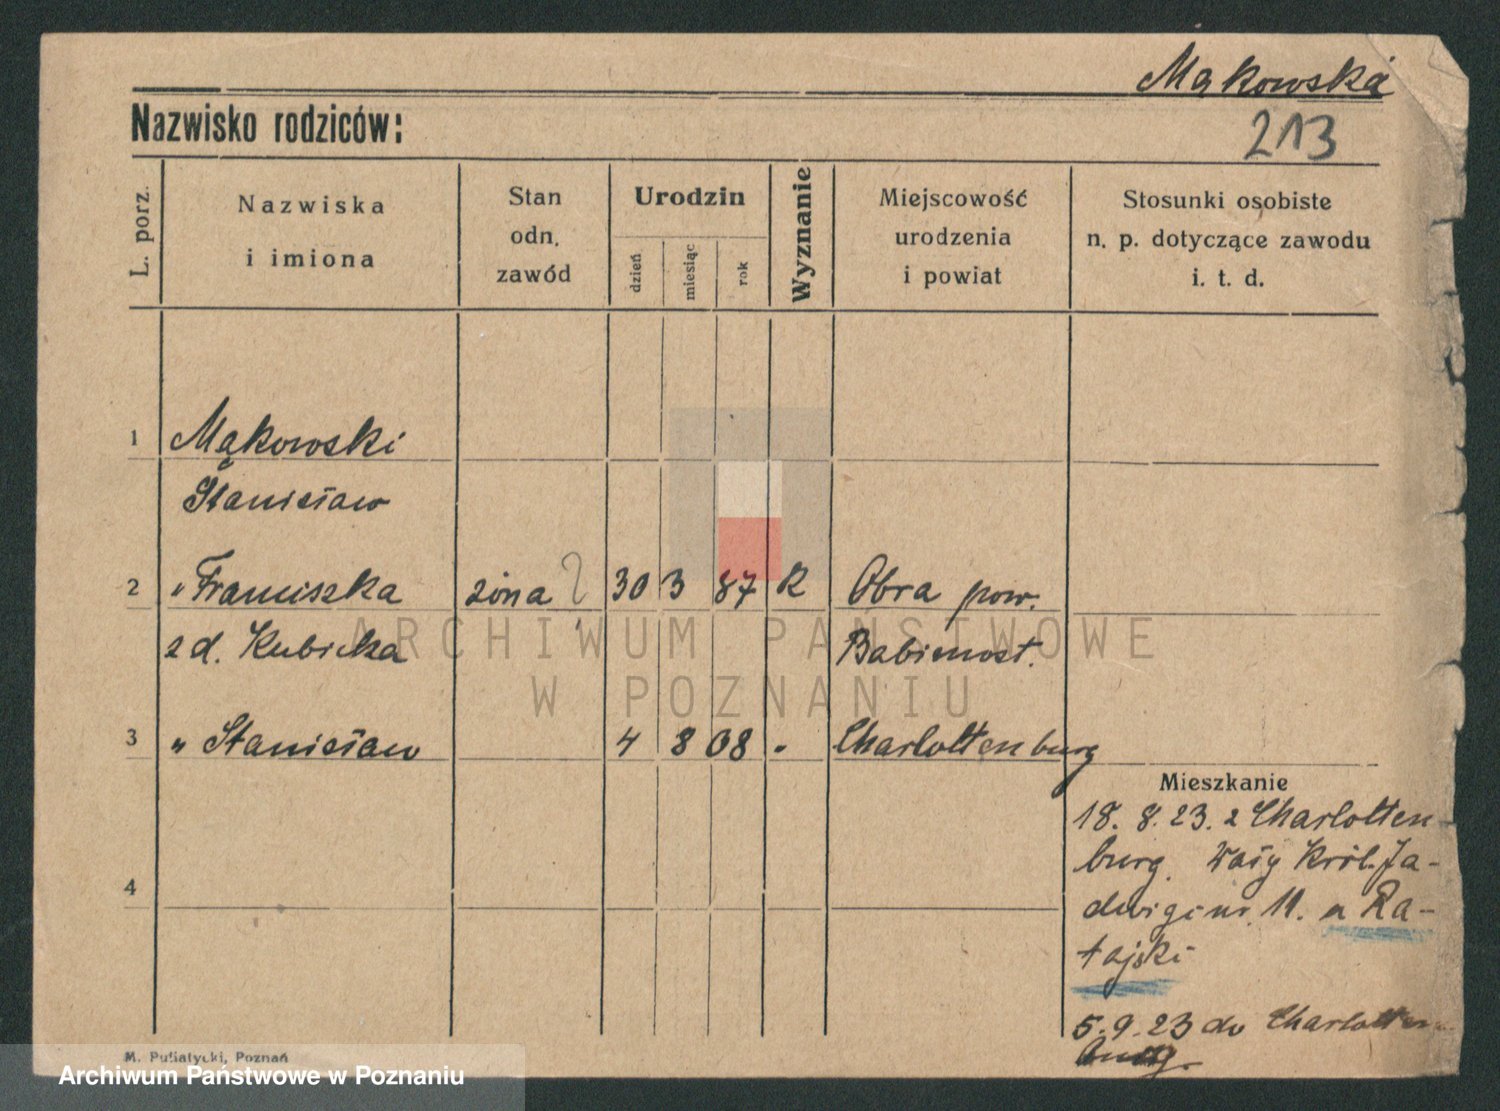 Mąkowska
Nazwisko rodziców:
213
L. porz.
Nazwiska
i imiona
Stan
odn.
zawód
Urodzin
dzień
miesiąc
rok
Wyznanie
Miejscowość
urodzenia
i powiat
Stosunki osobiste
n. p. dotyczące zawodu
i. t. d.
1 Mąkowski
Stanisław
2 " Franciszka żona 30 3 87 K Obra pow.
z d. Kubicka Babimost.
3 " Stanisław 4 8 08 " Charlottenburg
Mieszkanie
18. 8. 23. z Charlotten
burg. Wały Król. Ja-
dwigi nr. 11. u Ra-
tajski
4
5. 9. 23 do Charlotten-
burg.
M. Putiatycki, Poznań
ARCHIWUM PAŃSTWOWE
W POZNANIU
Archiwum Państwowe w Poznaniu